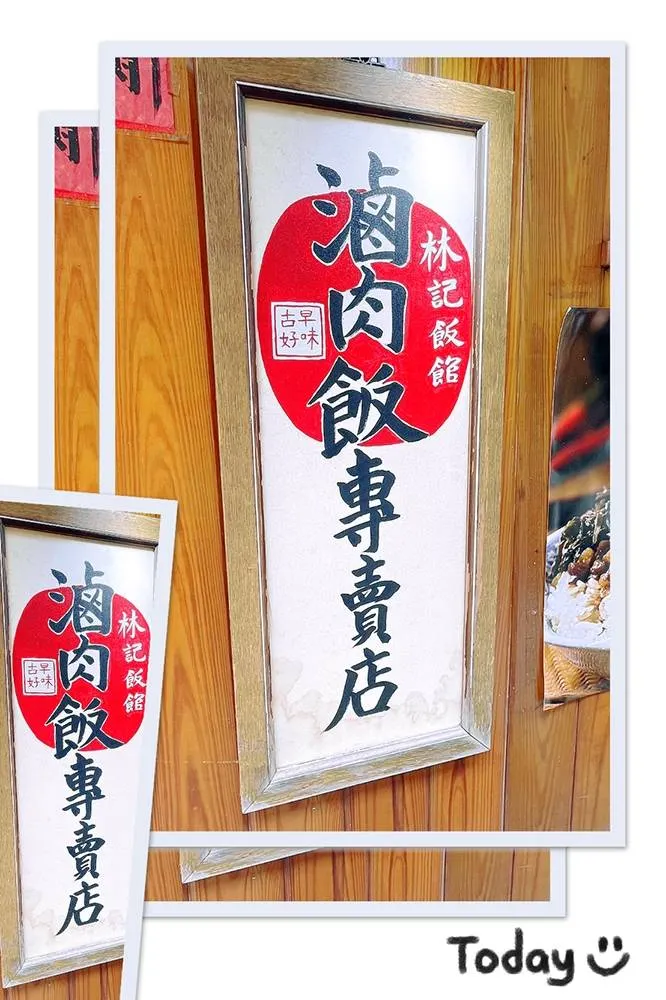 林記飯館
滷肉飯專賣店
古早
好味
林記飯館
滷肉飯專賣店
古早
好味
Today